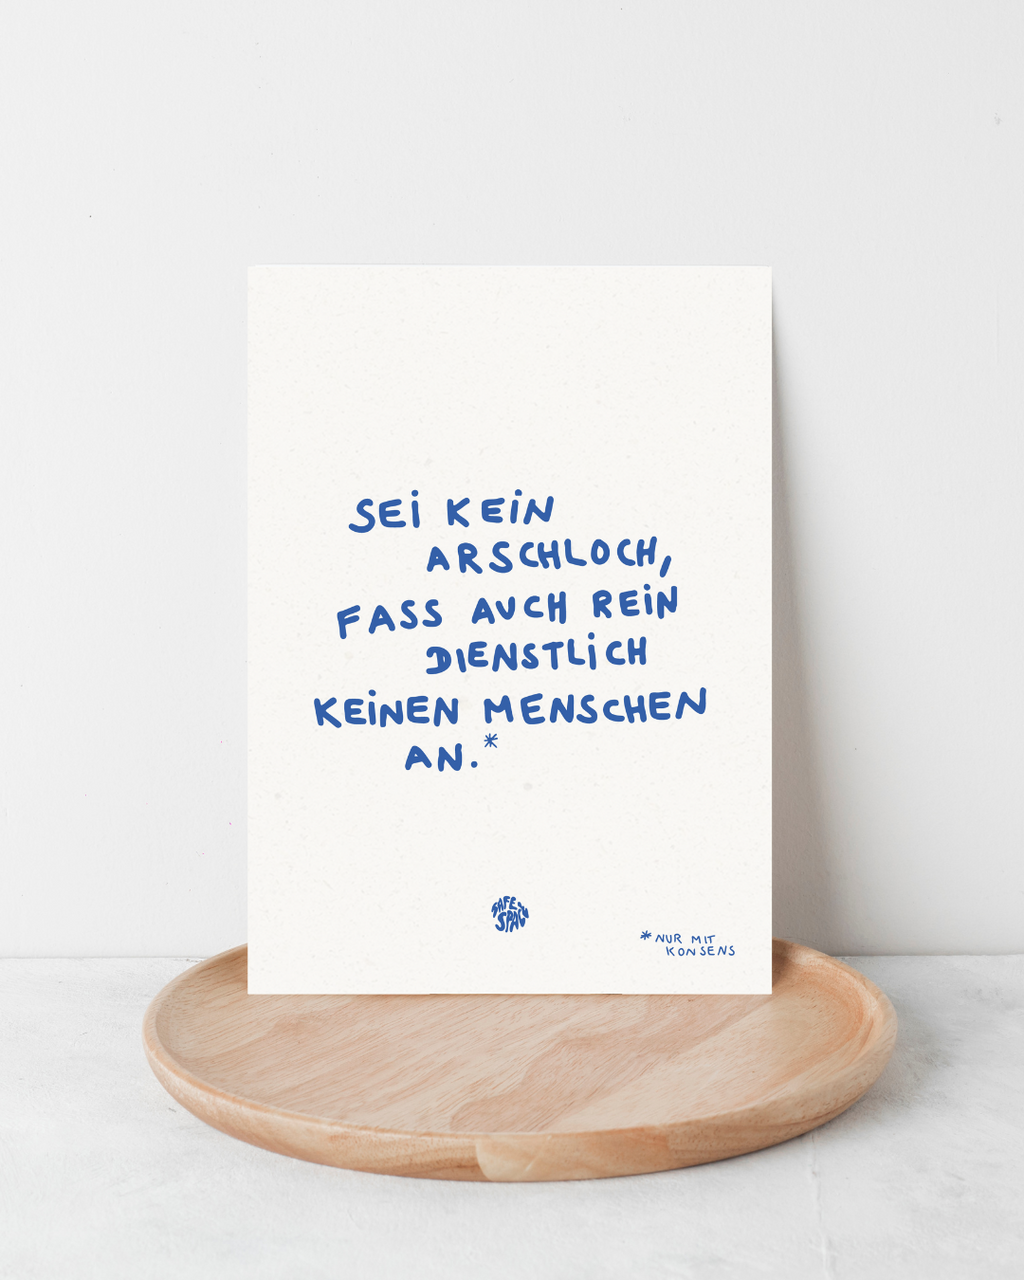 SEI KEIN
ARSCHLOCH,
FASS AUCH REIN
DIENSTLICH
KEINEN MENSCHEN
AN.*
SAFE
*NUR MIT
KONSENS